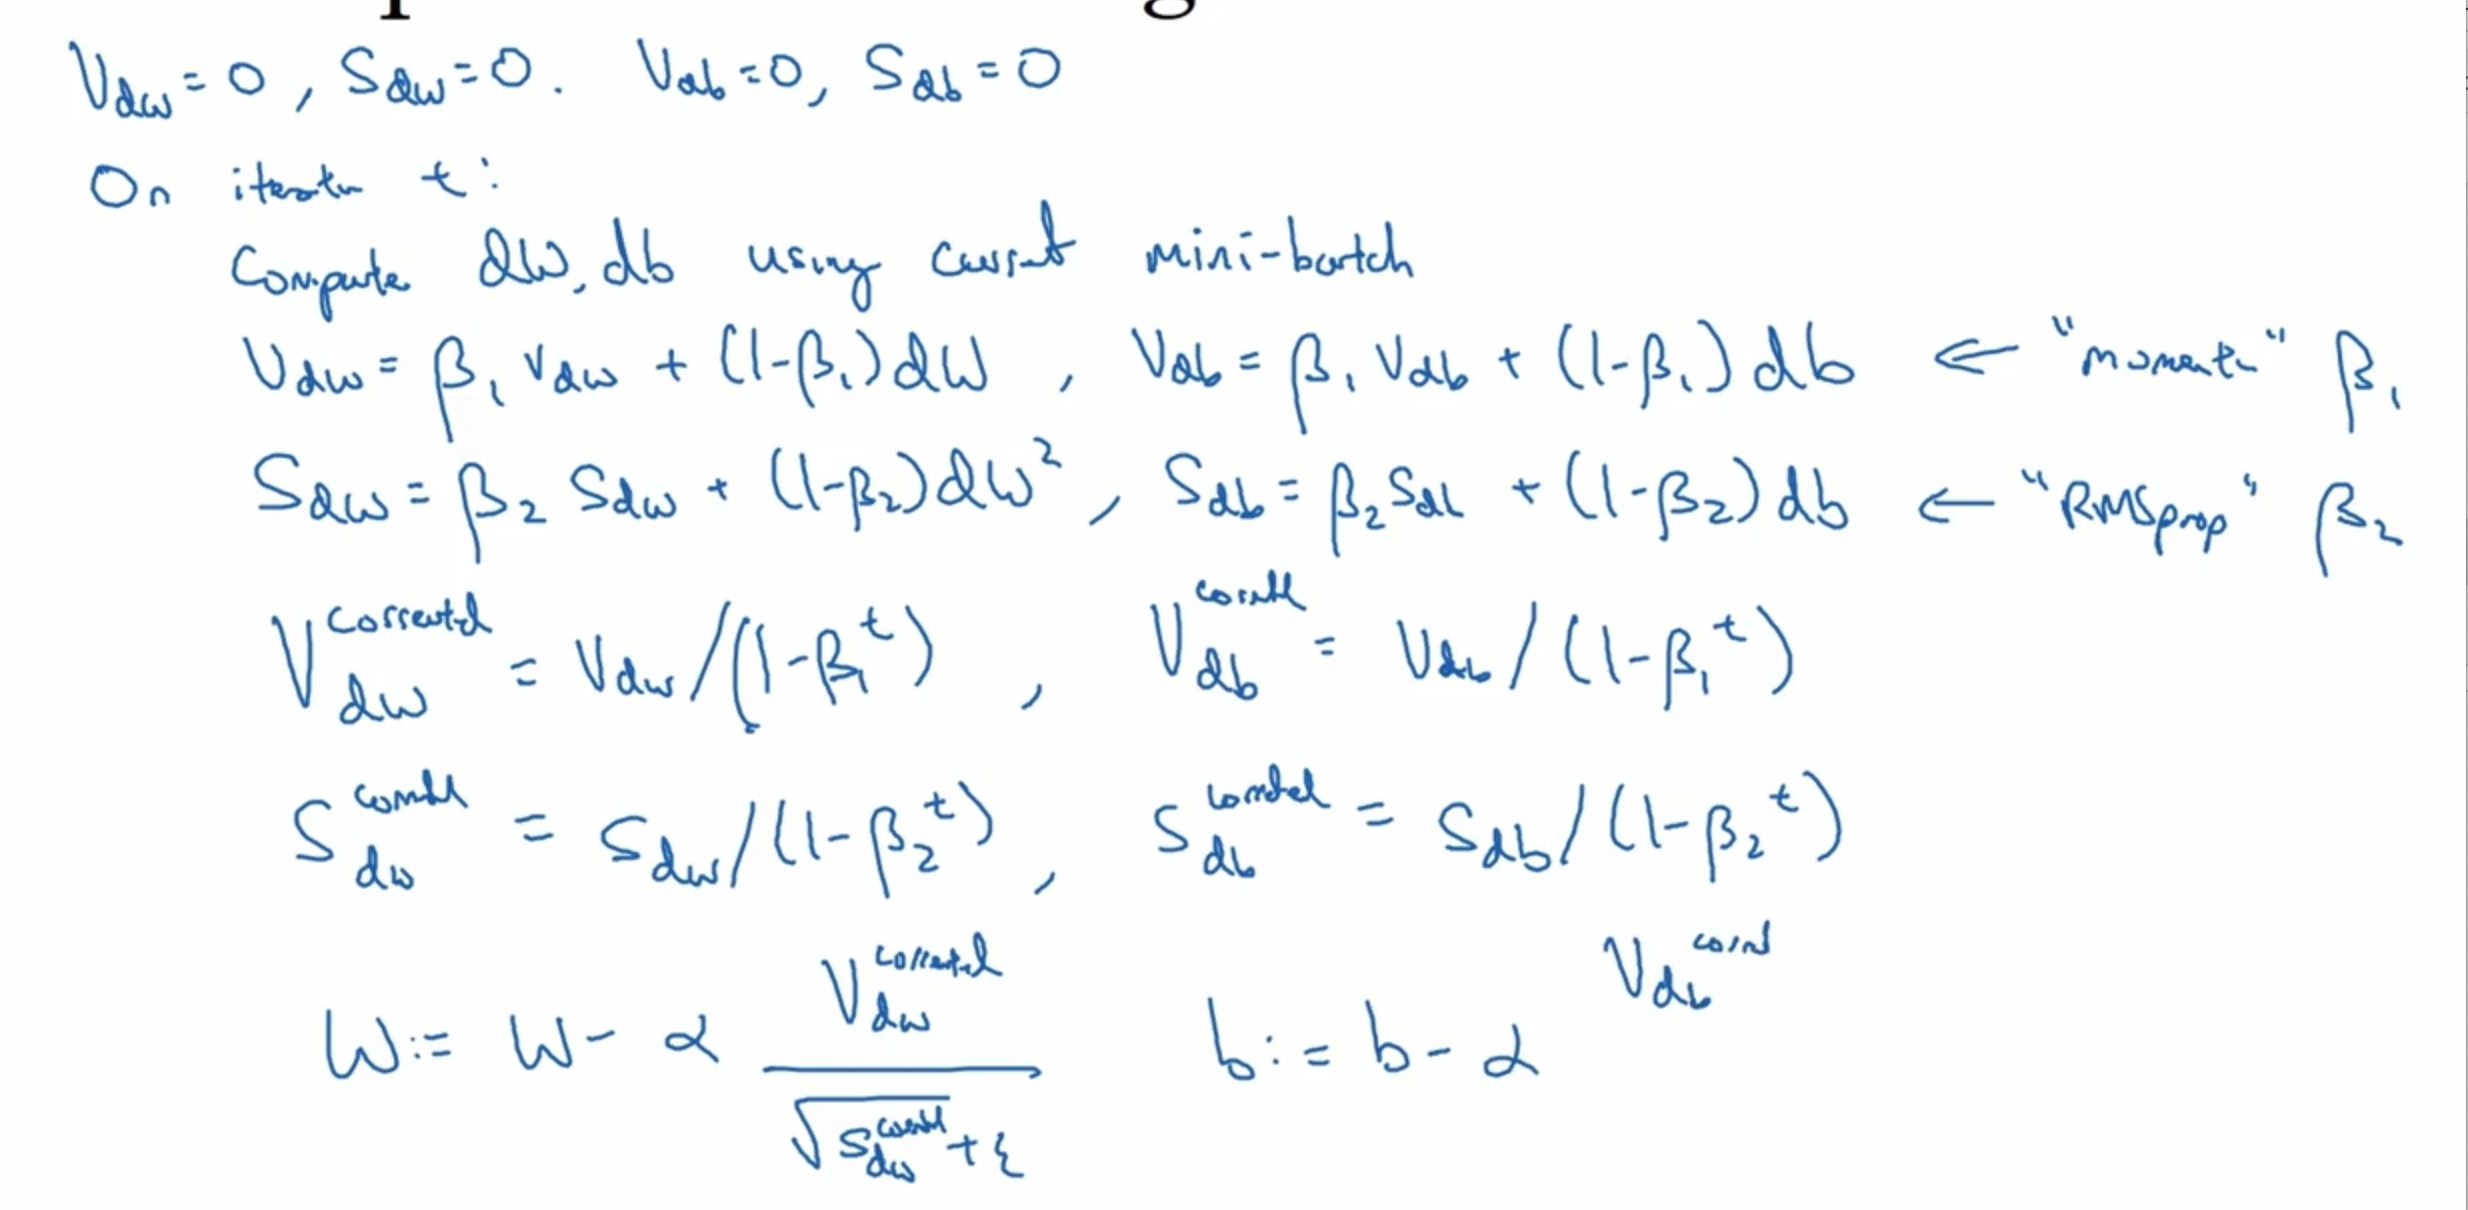 V_dw = 0, S_dw = 0. V_db = 0, S_db = 0
On iteration t:
Compute dW, db using current mini-batch
V_dw = β₁ V_dw + (1-β₁) dW , V_db = β₁ V_db + (1-β₁) db ← "momentum" β₁
S_dw = β₂ S_dw + (1-β₂) dW² , S_db = β₂ S_db + (1-β₂) db ← "RMSprop" β₂
V_dw^corrected = V_dw / (1-β₁^t) , V_db^corrected = V_db / (1-β₁^t)
S_dw^corrected = S_dw / (1-β₂^t) , S_db^corrected = S_db / (1-β₂^t)
W := W - α V_dw^corrected / (√S_dw^corrected + ε) b := b - α V_db^corrected